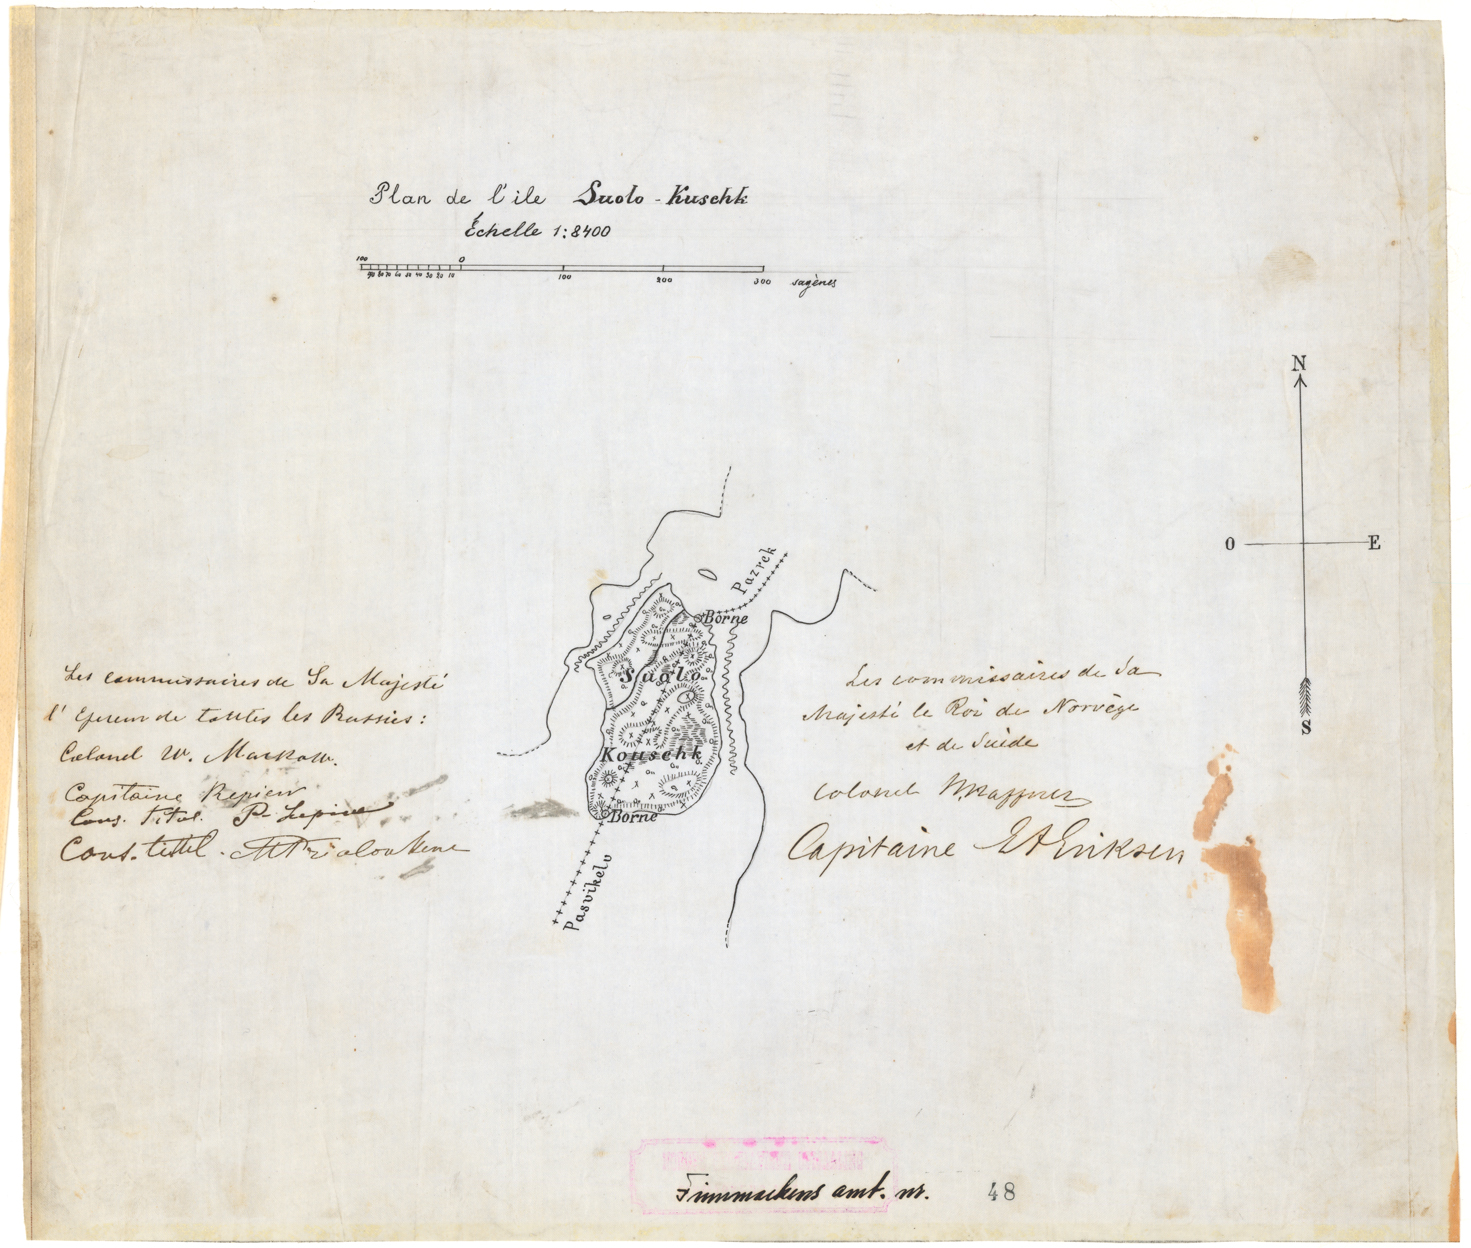 Plan de l'ile Suolo - Kuschk
Échelle 1:8400
100 0
90 80 70 60 50 40 30 20 10 100 200 300 sagènes
N
O E
S
Pazrek
Borne
Suolo
Kouschk
Borne
Pasvikelv
Les commissaires de Sa Majesté
l' de toutes les Russies:
Colonel W.
Capitaine
Cons. Titul. P.
Cons. titul.
Les commissaires de Sa
Majesté le Roi de Norvège
et de Suède
Colonel
Capitaine Eriksen
Finmarkens amt. nr. 48